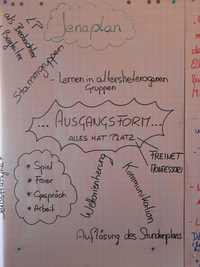 Jenaplan
LP
als Beobachter
& Begleiter
Stammgruppen
- Lernen in altersheterogenen
Gruppen
... AUSGANGSFORM...
ALLES HAT PLATZ
FREINET
MONTESSORI
* Spiel
* Feier
* Gespräch
* Arbeit
Weltorientierung
Kommunikation
Auflösung des Stundenplans